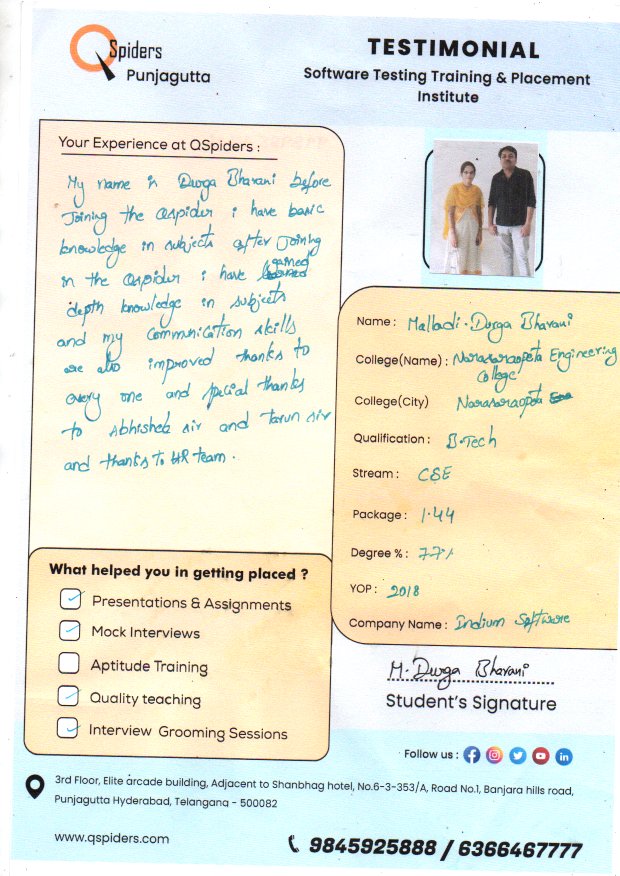 QSpiders
Punjagutta
TESTIMONIAL
Software Testing Training & Placement
Institute
Your Experience at QSpiders :
My name is Durga Bhavani before
Joining the Qspider i have basic
knowledge in subjects after Joining
in the Qspider i have gained
depth knowledge in subjects
and my Communication skills
are also improved thanks to
every one and special thanks
to Abhishek sir and Tarun sir
and thanks to HR team.
Name : Malladi. Durga Bhavani
College(Name) : Narasaraopeta Engineering
College
College(City) Narasaraopeta
Qualification : B.Tech
Stream : CSE
Package : 1.44
Degree % : 77%
YOP : 2018
Company Name : Indium Software
What helped you in getting placed ?
Presentations & Assignments
Mock Interviews
Aptitude Training
Quality teaching
Interview Grooming Sessions
M. Durga Bhavani
Student's Signature
Follow us :
3rd Floor, Elite arcade building, Adjacent to Shanbhag hotel, No.6-3-353/A, Road No.1, Banjara hills road,
Punjagutta Hyderabad, Telangana - 500082
www.qspiders.com
9845925888 / 6366467777